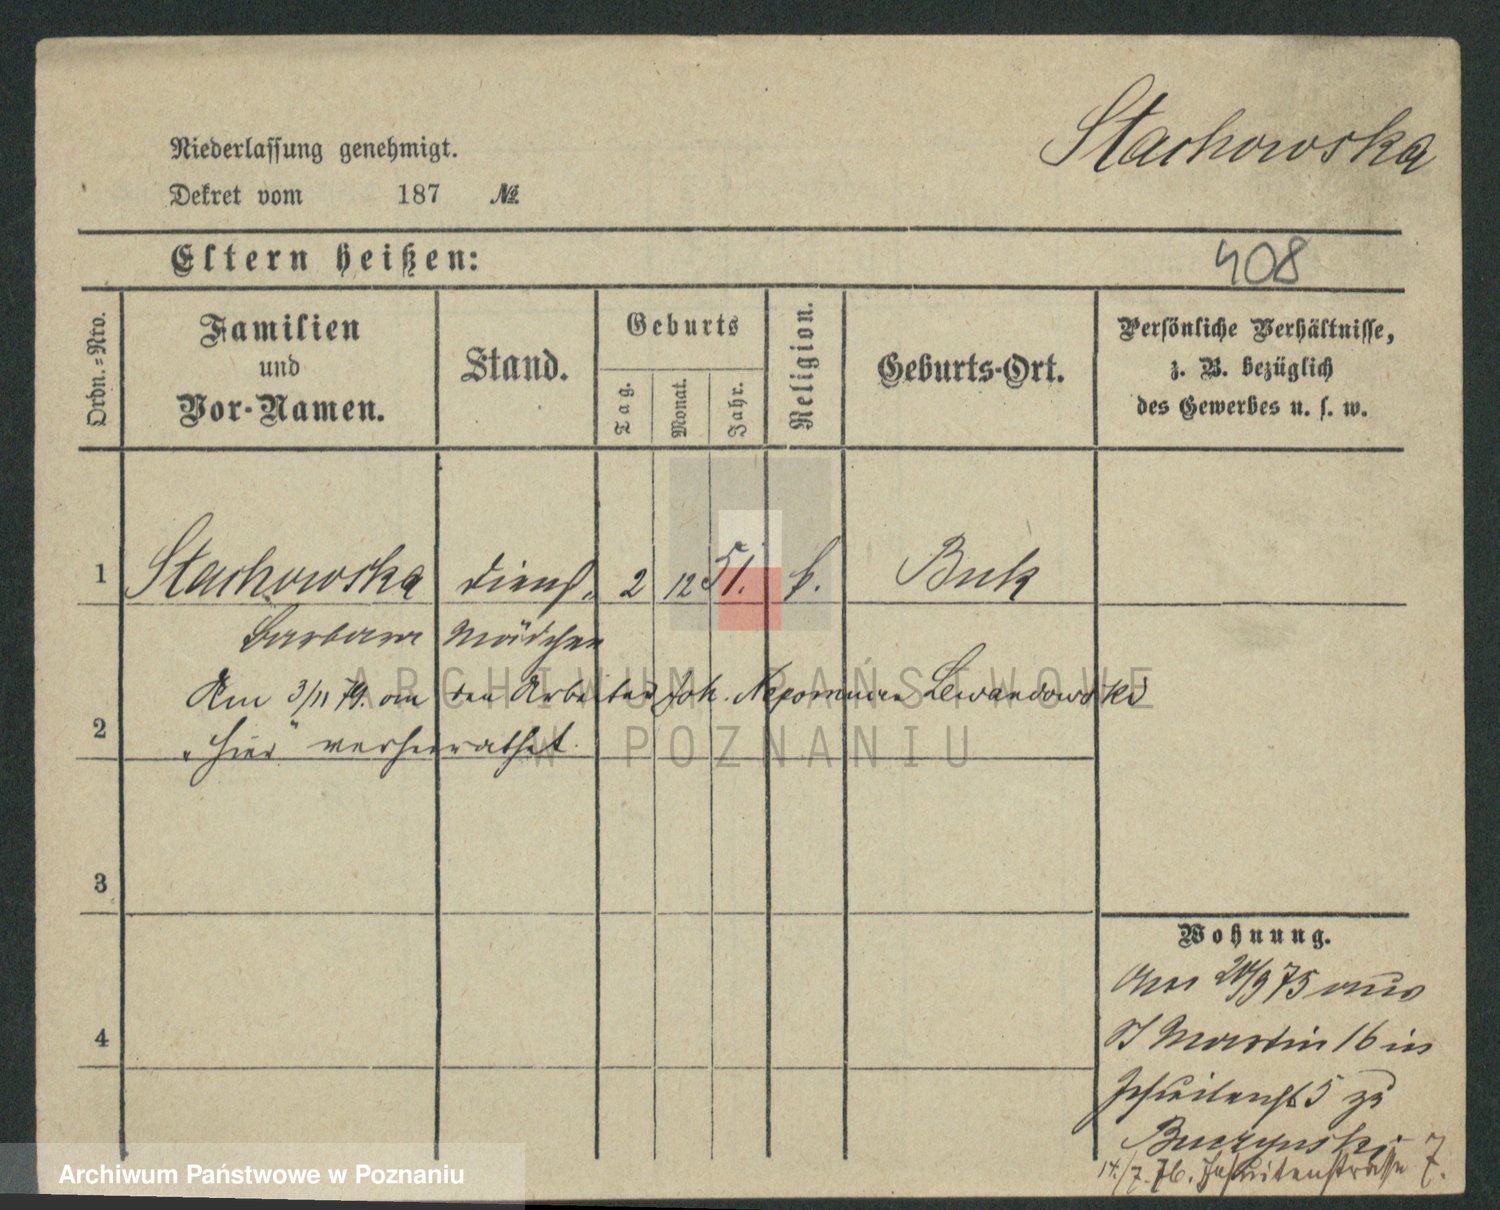 Stachowska
Niederlassung genehmigt.
Dekret vom 187 №
Eltern heißen:
408
Ordn.-Nro.
Familien
und
Vor-Namen.
Stand.
Geburts
Tag.
Monat.
Jahr.
Religion.
Geburts-Ort.
Persönliche Verhältnisse,
z. B. bezüglich
des Gewerbes u. s. w.
1 Stachowska Dienst- 2 12 51. k. Buk
Barbara Mädchen
Am 3/11 79. an den Arbeiter Joh. Nepomucen Lewandowski
2 hier verheirathet.
3
4
Wohnung.
Am 24/9 75 aus
St Martin 16 in
Jesuitenst 5 zu
Buczynski
14./7. 76. Jesuitenstrasse 7.
ARCHIWUM PAŃSTWOWE
W POZNANIU
Archiwum Państwowe w Poznaniu